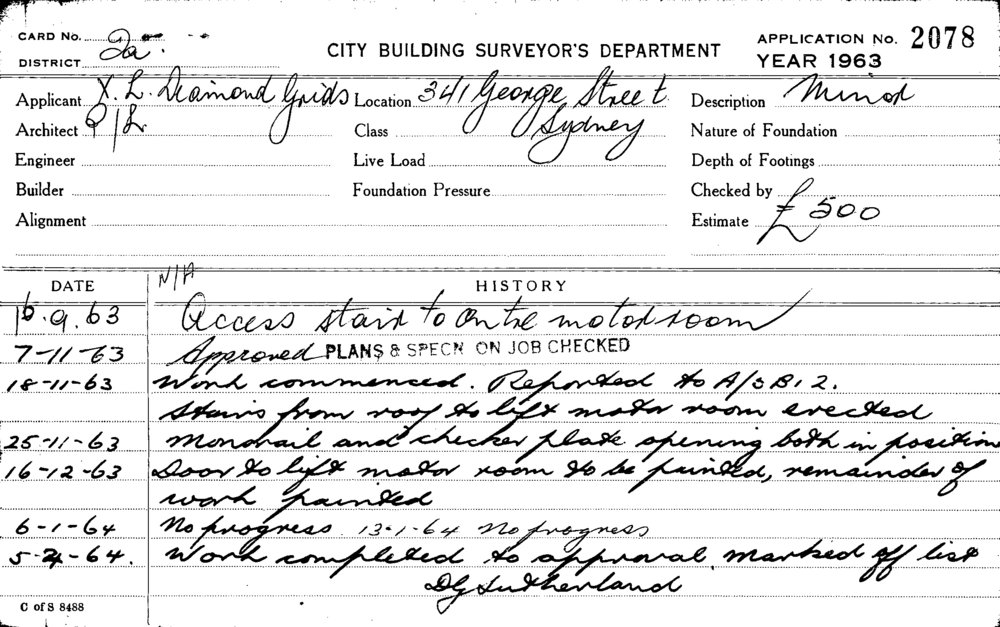 CARD No. 2a.
DISTRICT
CITY BUILDING SURVEYOR'S DEPARTMENT
APPLICATION No. 2078
YEAR 1963
Applicant X. L. Diamond Grids
Location 341 George Street
Sydney
Description Minor
Architect P/L
Class
Nature of Foundation
Engineer
Live Load
Depth of Footings
Builder
Foundation Pressure
Checked by
Alignment
Estimate £500
N/A
DATE HISTORY
16.9.63 Access stair to motor room
7-11-63 Approved PLANS & SPECN ON JOB CHECKED
18-11-63 Work commenced. Reported to A/SB12.
Stairs from roof to lift motor room erected
25-11-63 Monorail and checker plate opening both in position
16-12-63 Door to lift motor room to be painted, remainder of
work painted
6-1-64 No progress 13-1-64 No progress
5-2-64. Work completed to approval. Marked off list
DG Sutherland
C of S 8488